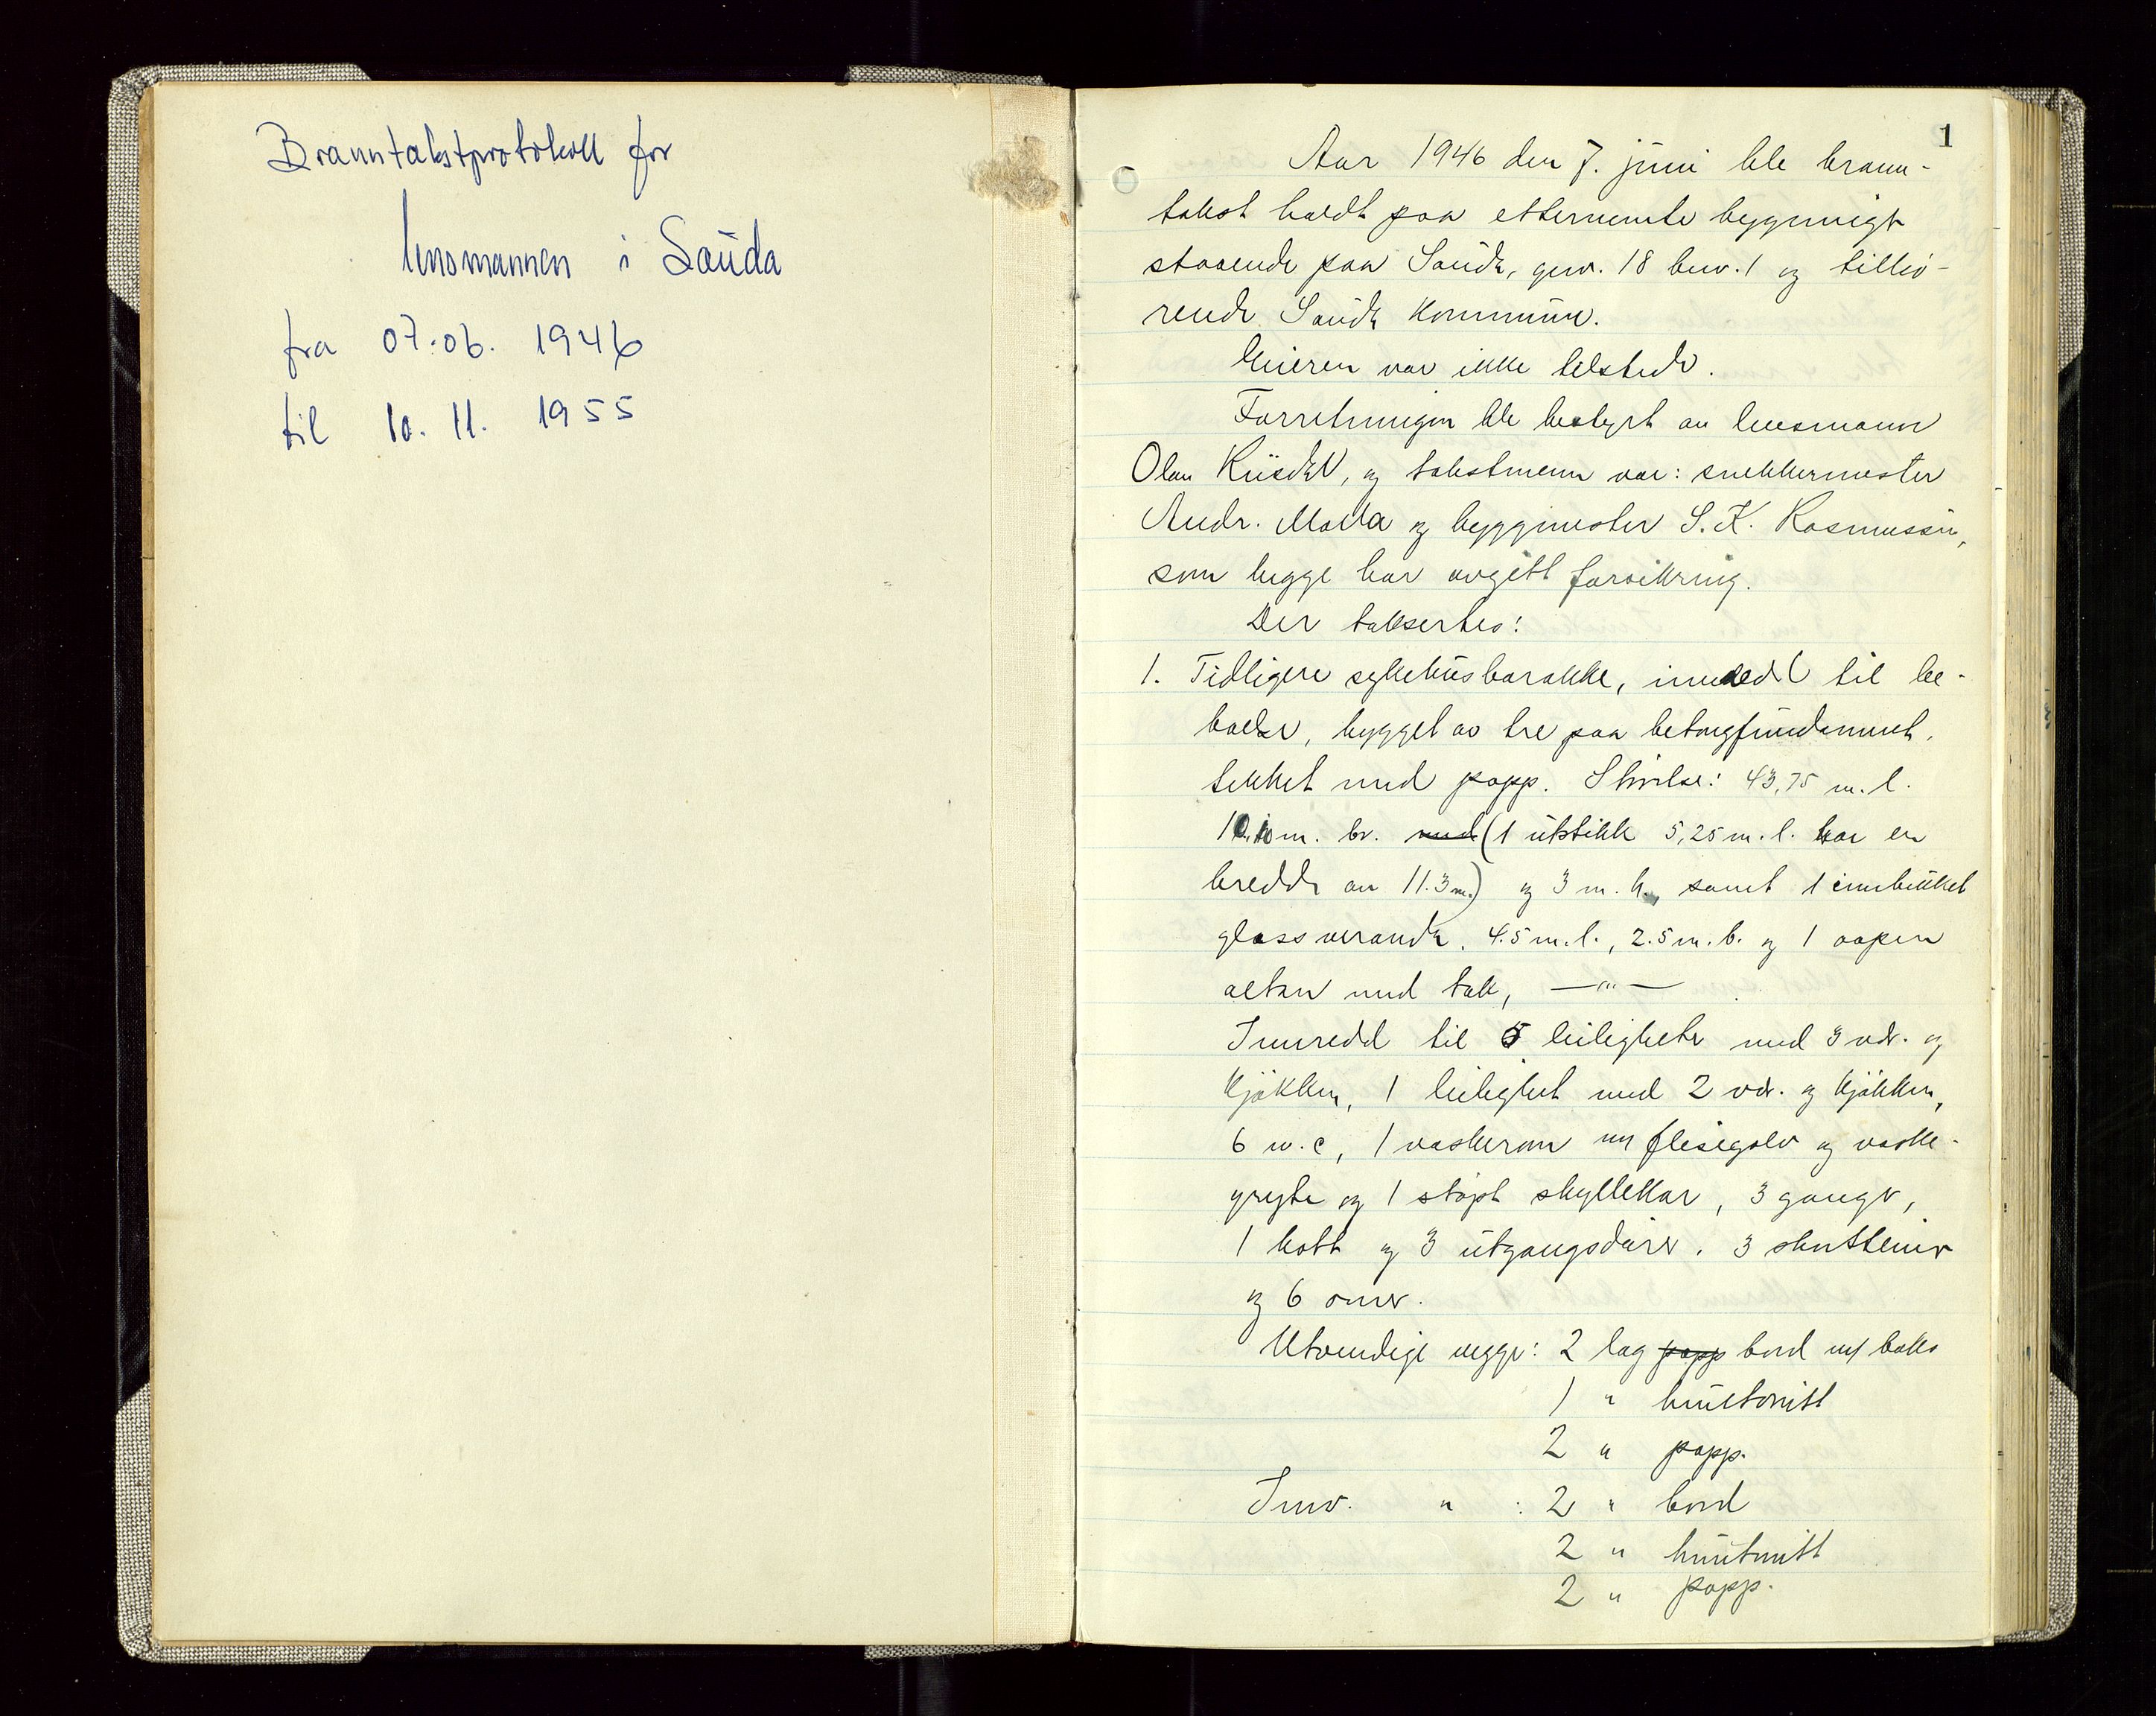 Branntakstprotokoll for
lensmannen i Sauda
fra 07.06. 1946
til 10. 11. 1955
1
Aar 1946 den 7. juni ble brann-
takst holdt paa etternemte bygning
staaende paa Sauda, gnr. 18 bnr. 1 og tilhö-
rende Sauda kommune.
Eieren var ikke tilstede.
Forretningen ble bestyrt av lensmann
Olav og takstmenn var: snekkermester
Andr. Molla og byggmester S. K. Rasmussen,
som begge har avgitt forsikring.
Der takseres:
1. Tidligere sykehusbarakke, innredd til be-
boelse, bygget av tre paa betongfundament,
tekket med papp. Störrelse: 43,75 m. l.
10.10 m. br. med (1 utstikk 5,25 m. l. har en
bredde av 11.3 m.) og 3 m. h., samt 1 innbukket
glassveranda. 4.5 m. l., 2.5 m. b. og 1 aapen
altan med tak, —"—
Innredd til 5 leiligheter med 3 vær. og
kjökken, 1 leilighet med 2 vær. og kjökken,
6 w.c, 1 vaskerom m/ flisegolv og vaske-
gryte og 1 stöpt skyllekar, 3 ganger,
1 kott og 3 utgangsdörer. 3 skorsteiner
og 6 ovner.
Utvendige vegger: 2 lag papp bord m/ kaks
1 " huntonitt
2 " papp.
Innv. " : 2 " bord
2 " huntonitt
2 " papp.